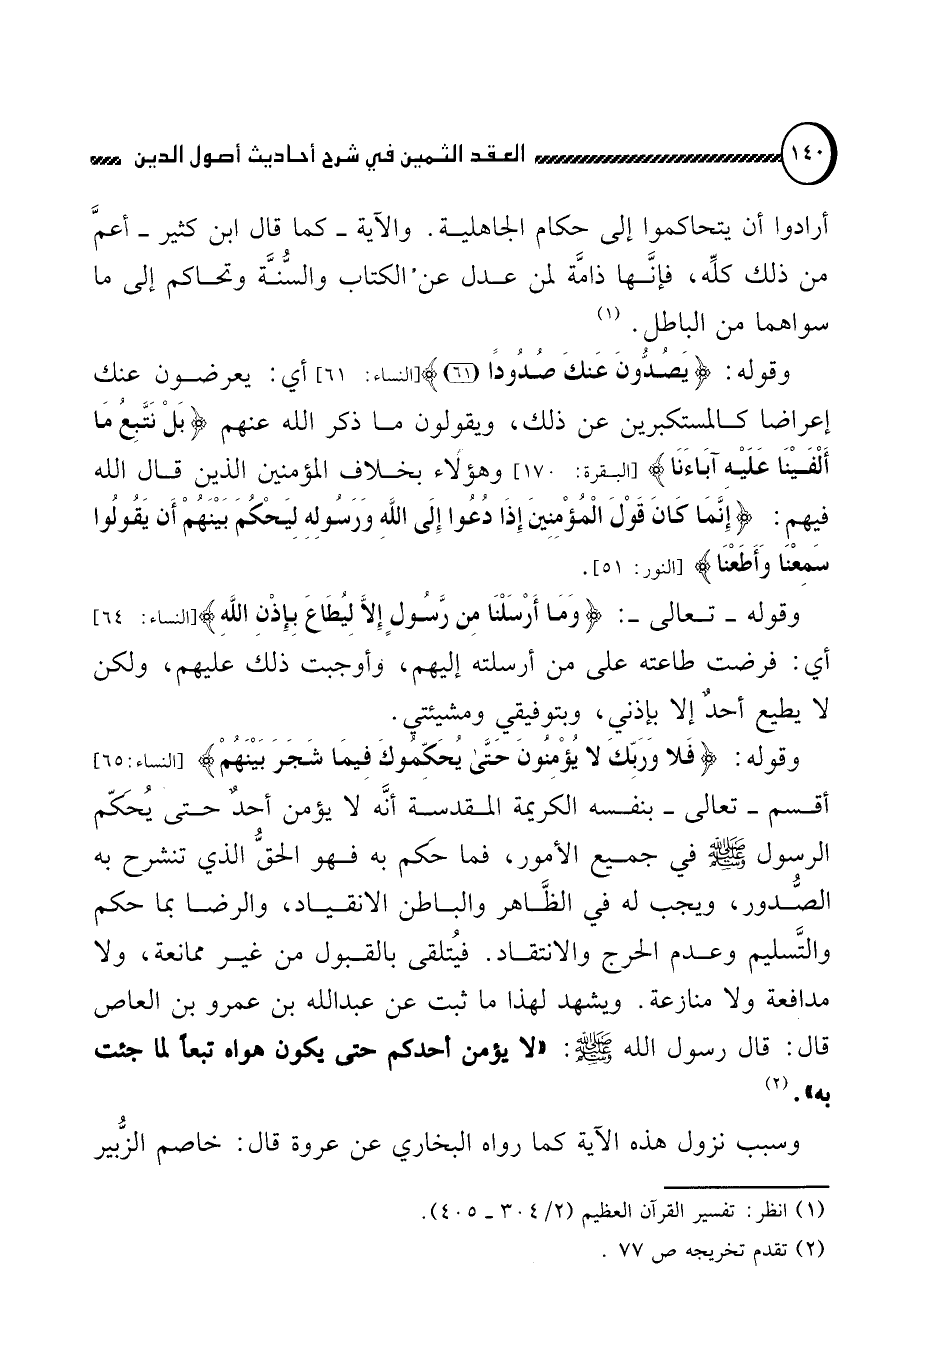 ١٤٠ العقد الثمين في شرح أحاديث أصول الدين
أرادوا أن يتحاكموا إلى حكام الجاهلية. والآية ـ كما قال ابن كثير ـ أعمَّ
من ذلك كلِّه، فإنَّها ذامَّة لمن عدل عن الكتاب والسُّنَّة وتحاكم إلى ما
سواهما من الباطل. (١)
وقوله: ﴿يَصُدُّونَ عَنكَ صُدُودًا (٦١)﴾[النساء: ٦١] أي: يعرضون عنك
إعراضا كالمستكبرين عن ذلك، ويقولون ما ذكر الله عنهم ﴿بَلْ نَتَّبِعُ مَا
أَلْفَيْنَا عَلَيْهِ آبَاءَنَا﴾ [البقرة: ١٧٠] وهؤلاء بخلاف المؤمنين الذين قال الله
فيهم: ﴿إِنَّمَا كَانَ قَوْلَ الْمُؤْمِنِينَ إِذَا دُعُوا إِلَى اللَّهِ وَرَسُولِهِ لِيَحْكُمَ بَيْنَهُمْ أَن يَقُولُوا
سَمِعْنَا وَأَطَعْنَا﴾ [النور: ٥١].
وقوله ـ تعالى ـ: ﴿وَمَا أَرْسَلْنَا مِن رَّسُولٍ إِلاَّ لِيُطَاعَ بِإِذْنِ اللَّهِ﴾[النساء: ٦٤]
أي: فرضت طاعته على من أرسلته إليهم، وأوجبت ذلك عليهم، ولكن
لا يطيع أحدٌ إلا بإذني، وبتوفيقي ومشيئتي.
وقوله: ﴿فَلا وَرَبِّكَ لا يُؤْمِنُونَ حَتَّىٰ يُحَكِّمُوكَ فِيمَا شَجَرَ بَيْنَهُمْ﴾ [النساء:٦٥]
أقسم ـ تعالى ـ بنفسه الكريمة المقدسة أنَّه لا يؤمن أحدٌ حتى يُحكّم
الرسول ﷺ في جميع الأمور، فما حكم به فهو الحقُّ الذي تنشرح به
الصُّدور، ويجب له في الظَّاهر والباطن الانقياد، والرضا بما حكم
والتَّسليم وعدم الحرج والانتقاد. فيُتلقى بالقبول من غير ممانعة، ولا
مدافعة ولا منازعة. ويشهد لهذا ما ثبت عن عبدالله بن عمرو بن العاص
قال: قال رسول الله ﷺ: «لا يؤمن أحدكم حتى يكون هواه تبعاً لما جئت
به». (٢)
وسبب نزول هذه الآية كما رواه البخاري عن عروة قال: خاصم الزُّبير
(١) انظر: تفسير القرآن العظيم (٢/ ٣٠٤ ـ ٤٠٥).
(٢) تقدم تخريجه ص ٧٧ .